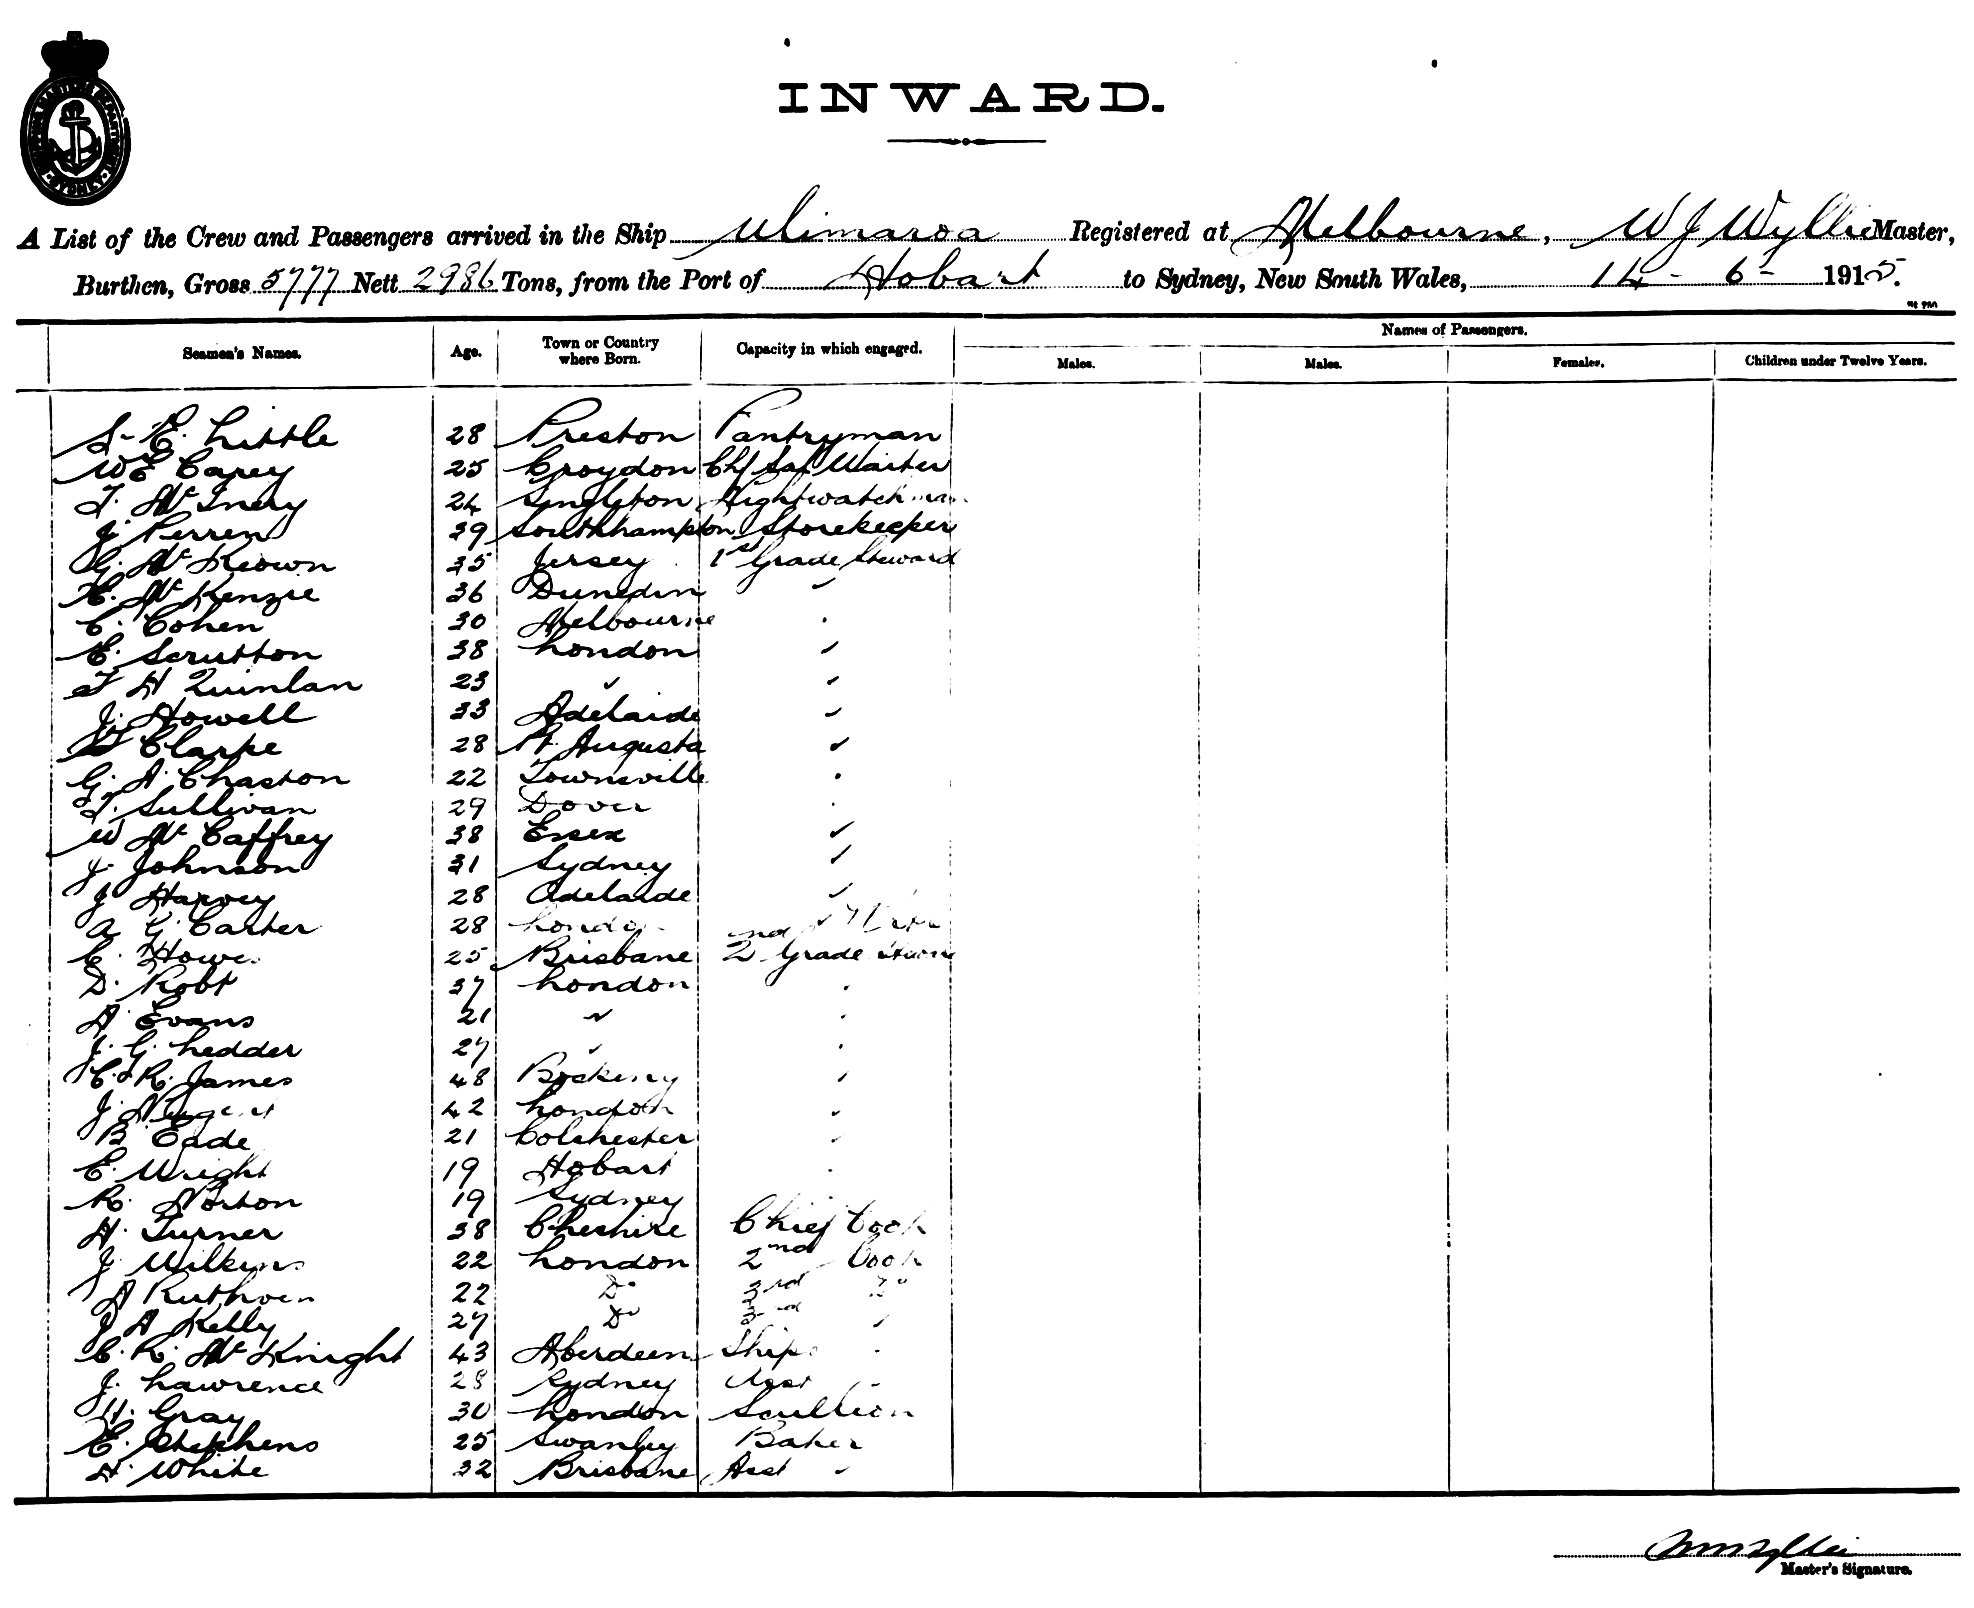 INWARD.
A List of the Crew and Passengers arrived in the Ship Ulimaroa Registered at Melbourne, W J Wyllie Master,
Burthen, Gross 5777 Nett 2986 Tons, from the Port of Hobart to Sydney, New South Wales, 14 - 6 - 1915.
Names of Passengers.
Seamen's Names. Age. Town or Country where Born. Capacity in which engaged. Males. Males. Females. Children under Twelve Years.
S. E. Little 28 Preston Pantryman
W E Carey 25 Croydon Chf Sal Waiter
T. Mc Inery 24 Singleton Nightwatchman
J. Perren 39 Southhampton Storekeeper
G. Mc Keown 35 Jersey 1st Grade Steward
H. Mc Kenzie 36 Dunedin "
C. Cohen 30 Melbourne "
E. Scrutton 38 London "
T H Quinlan 23 " "
J. Howell 33 Adelaide "
T Clarke 28 Pt. Augusta "
G. A. Chaston 22 Townsville "
T. Sullivan 29 Dover "
W Mc Caffrey 38 Essex "
J. Johnson 31 Sydney "
J Harvey 28 Adelaide "
A G Carter 28 London "
C. Howes 25 Brisbane 2nd Grade Steward
D. Robt 37 London "
A Evans 21 " "
J. G. Ledder 27 " "
C. R. James 48 "
J. Nugent 42 London "
B. Eade 21 Colchester "
E. Wright 19 Hobart "
R. Norton 19 Sydney
H. Turner 38 Cheshire Chief Cook
J Wilkins 22 London 2nd Cook
A Ruthven 22 Do 3rd Do
J A Kelly 27 Do 3rd "
C. R. Mc Knight 43 Aberdeen Ships "
J. Lawrence 28 Sydney Asst "
H. Gray 30 London Scullion
E. Stephens 25 Swanley Baker
H. White 32 Brisbane Asst "
Master's Signature.